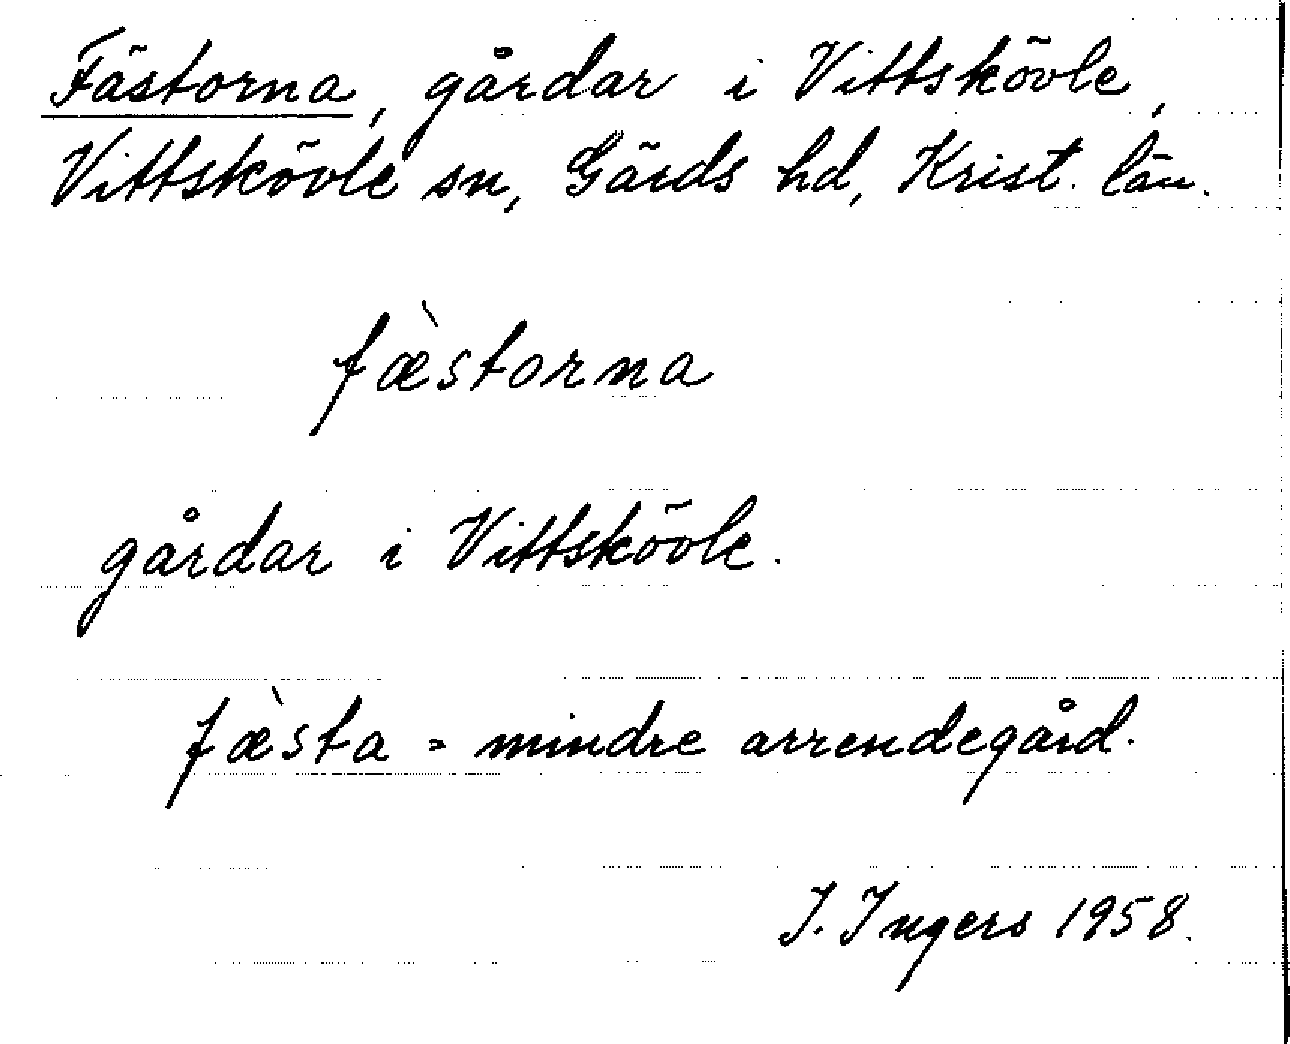 Fästorna, gårdar i Vittskövle,
Vittskövle sn, Gärds hd, Krist. län.
fæ̀storna
gårdar i Vittskövle.
fæ̀sta = mindre arrendegård.
I. Ingers 1958.